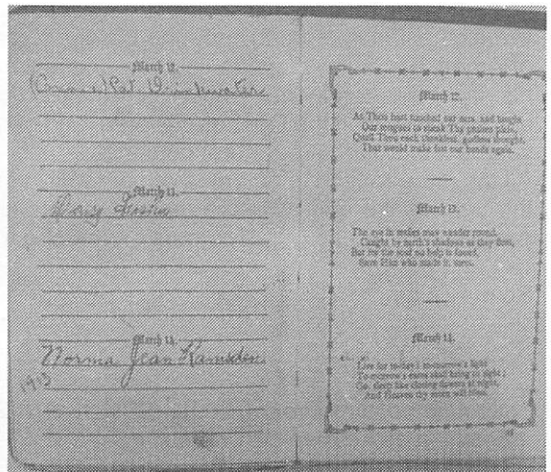 March 12.
(Connie) Pat Drinkwater
March 13.
Doris
March 14.
Norma Jean Ramsden
1913
March 12.
As Thou hast touched our ears, and taught
Our tongues to speak Thy praises plain,
Quell Thou each thankless, godless thought,
That would make fast our bonds again.
March 13.
The eye in smiles may wander round,
Caught by earth's shadows as they fleet,
But for the soul no help is found,
Save Him who made it, meet.
March 14.
Live for to-day! to-morrow's light
To-morrow's cares shall bring to sight;
Go, sleep like closing flowers at night,
And Heaven thy morn will bless.